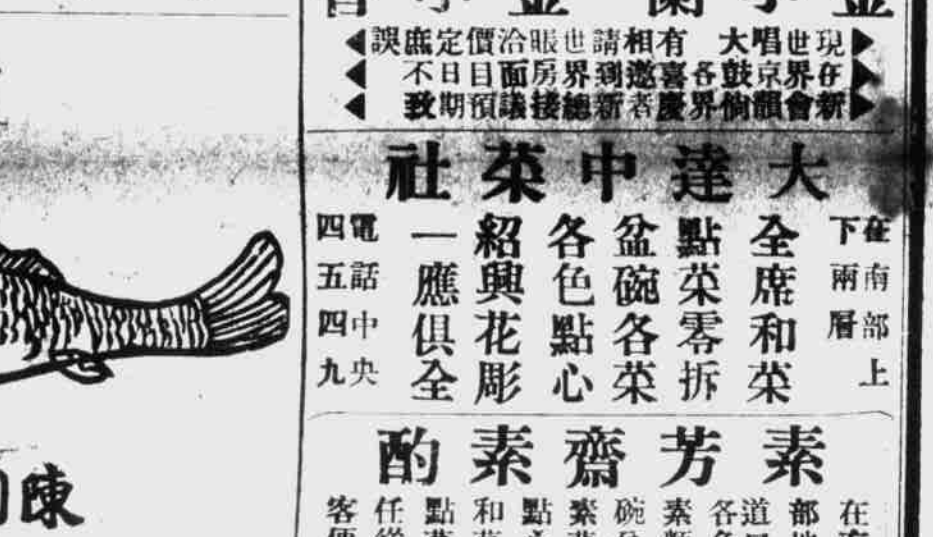 現在新
世界會
唱京韻
大鼓倘
各界
有喜慶
相邀者
請到新
世界總
賬房接
洽面議
價目預
定日期
庶不致
誤
大達中菜社
在南部上
下兩層
全席和菜
點菜零拆
盆碗各菜
各色點心
紹興花彫
一應俱全
電話中央
四五四九
素芳齋素酌
在
部
道
各
素
碗
素
點
和
點
任
客
陳